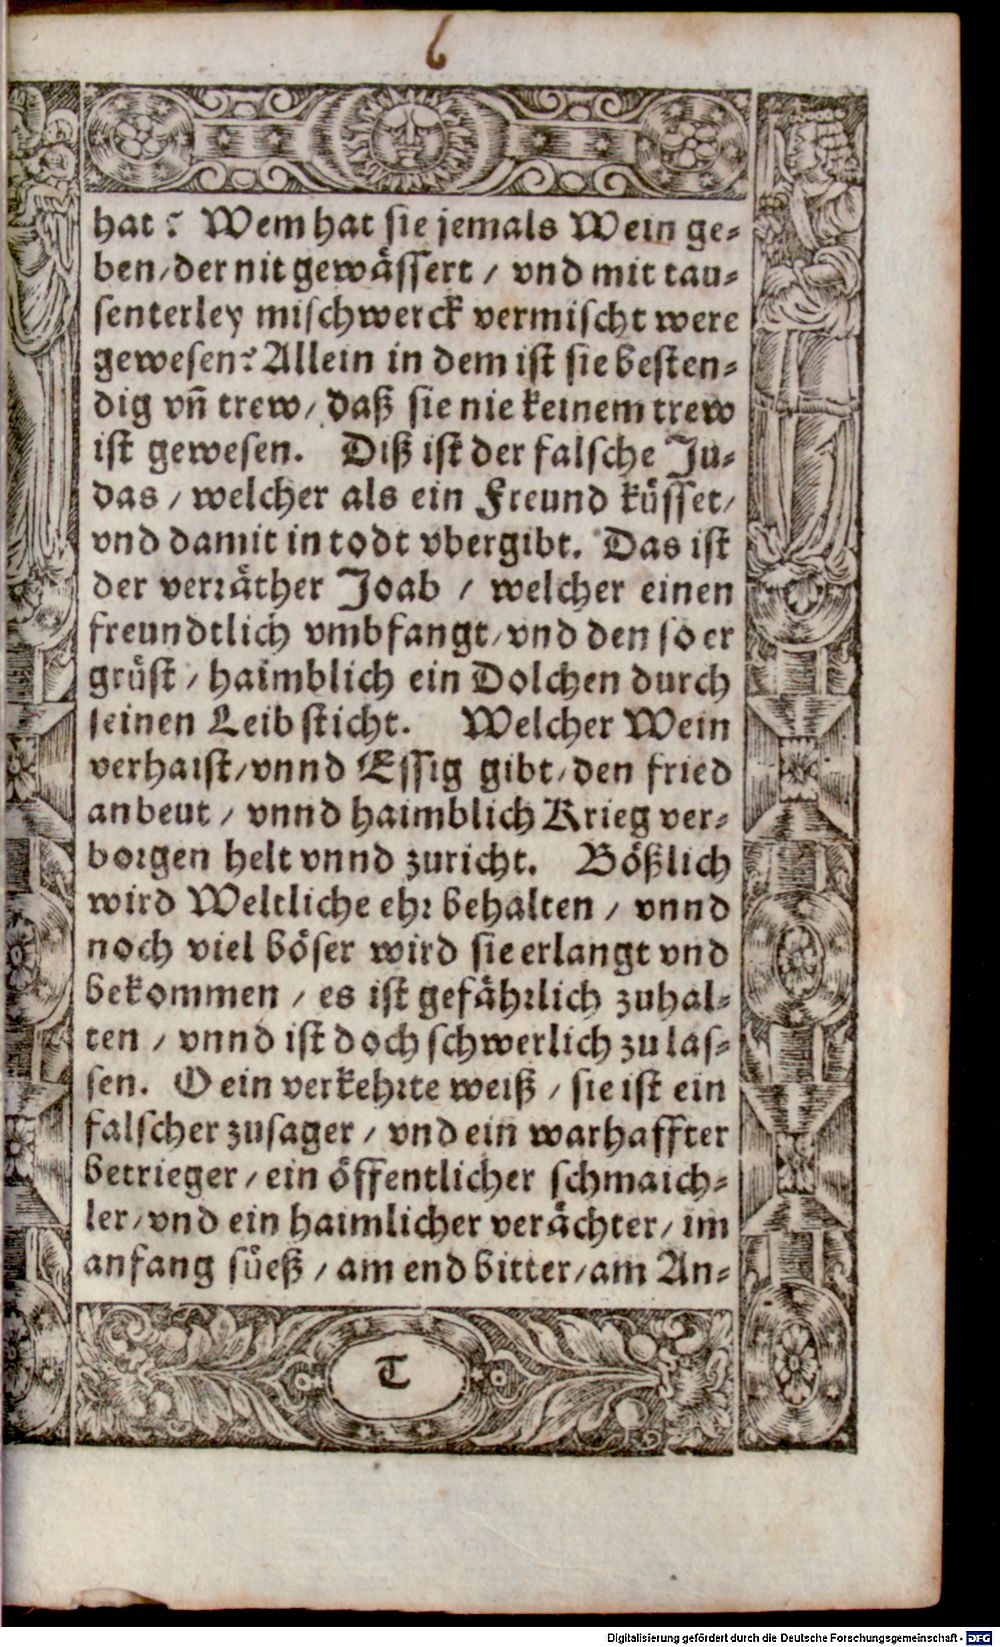 6
hat? Wem hat sie jemals Wein ge-
ben/ der nit gewässert / vnd mit tau-
senterley mischwerck vermischt were
gewesen? Allein in dem ist sie besten-
dig vñ trew/ daß sie nie keinem trew
ist gewesen. Diß ist der falsche Ju-
das / welcher als ein Freund küsset/
vnd damit in todt vbergibt. Das ist
der verräther Joab / welcher einen
freundtlich vmbfangt/ vnd den so er
grüst / haimblich ein Dolchen durch
seinen Leib sticht. Welcher Wein
verhaist/ vnnd Essig gibt/ den fried
anbeut / vnnd haimblich Krieg ver-
borgen helt vnnd zuricht. Bößlich
wird Weltliche ehr behalten / vnnd
noch viel böser wird sie erlangt vnd
bekommen / es ist gefährlich zuhal-
ten / vnnd ist doch schwerlich zu las-
sen. O ein verkehrte weiß / sie ist ein
falscher zusager / vnd ein warhaffter
betrieger / ein öffentlicher schmaich-
ler/ vnd ein haimlicher verächter/ im
anfang süeß / am end bitter/ am An-
T
Digitalisierung gefördert durch die Deutsche Forschungsgemeinschaft - DFG